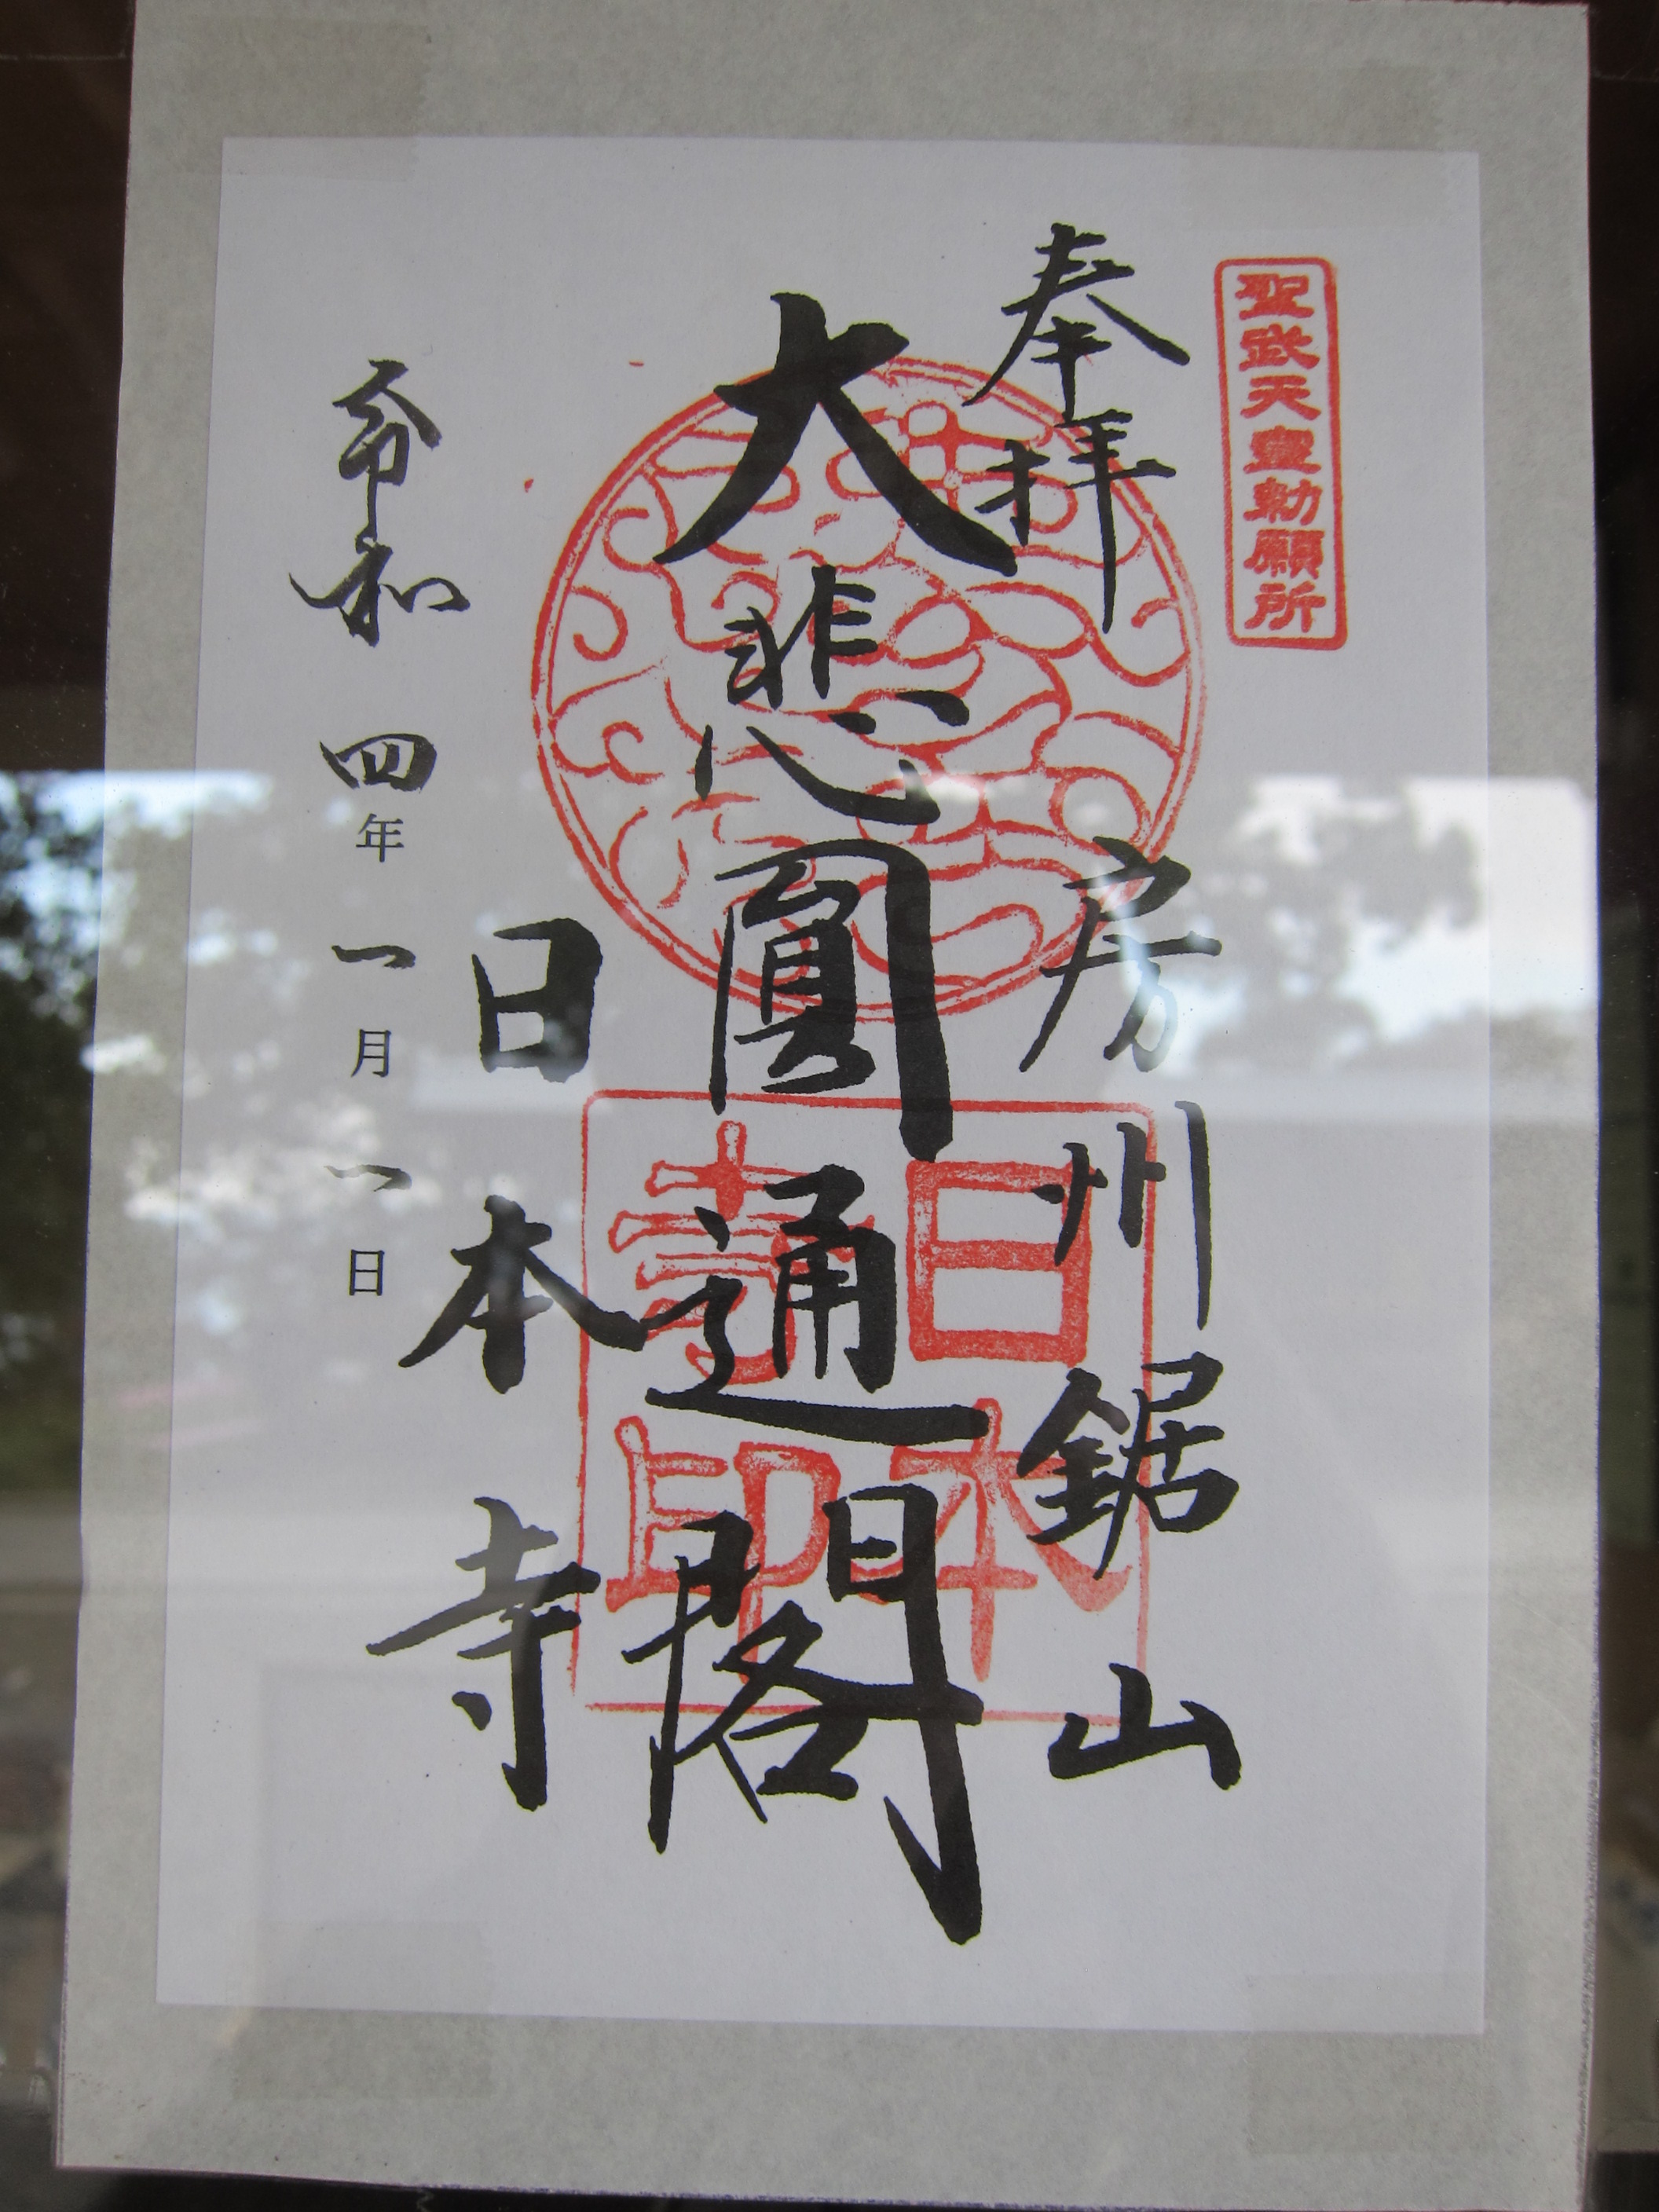 聖武天皇勅願所
奉拝
房州鋸山
大悲圓通閣
日本寺
日本寺印
令和四年一月一日